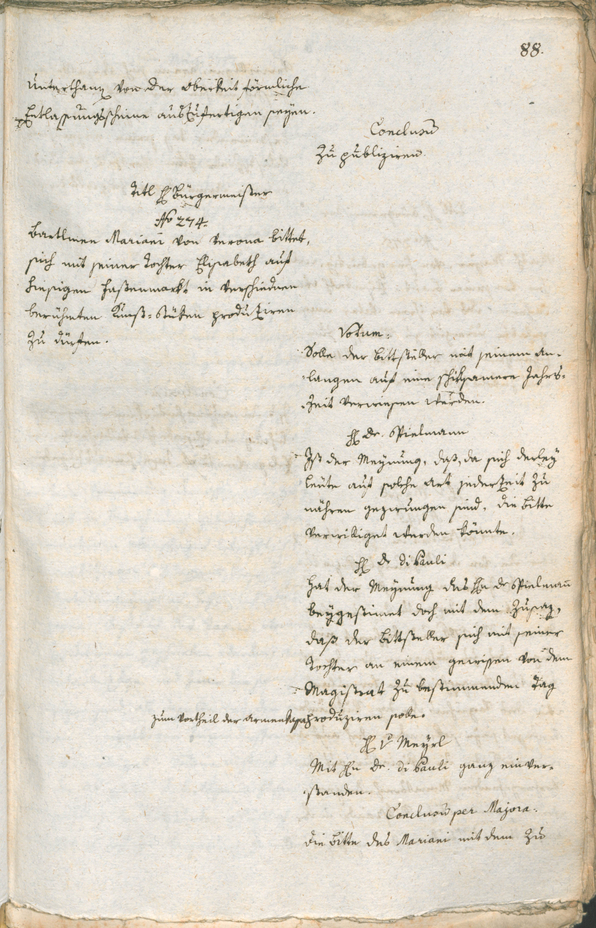 88.
Unterthanen von der Obrigkeit förmliche
Entlassungsscheine auszufertigen seyen.
Conclusum
Zu publiziren.
Titl H Bürgermeister
No 274.
Bartlmee Mariani von Verona bittet,
sich mit seiner Tochter Elisabeth auf
hiesigen Fastenmarkt in verschiedenen
berühmten Kunst-Stüken produziren
zu dürfen.
Votum:
Solle der Bittsteller mit seinem An-
langen auf eine schiksamere Jahrs-
Zeit verwiesen werden.
H de Spielmann
Ist der Meynung, daß, da sich derley
Leute auf solche Art jederzeit zu
nähren gezwungen sind, die Bitte
verwilliget werden könnte.
H de di Pauli
hat der Meynung des Hn de Spielmann
beygestimet doch mit dem Zusaz,
daß der Bittsteller sich mit seiner
Tochter an einem gewissen von dem
Magistrat zu bestimmenden Tag
zum Vortheil der Armenkassa produziren solle.
H v Meyrl
Mit Hn de di Pauli ganz einver-
standen.
Conclusum per Majora.
Die Bitte des Mariani mit dem Zu